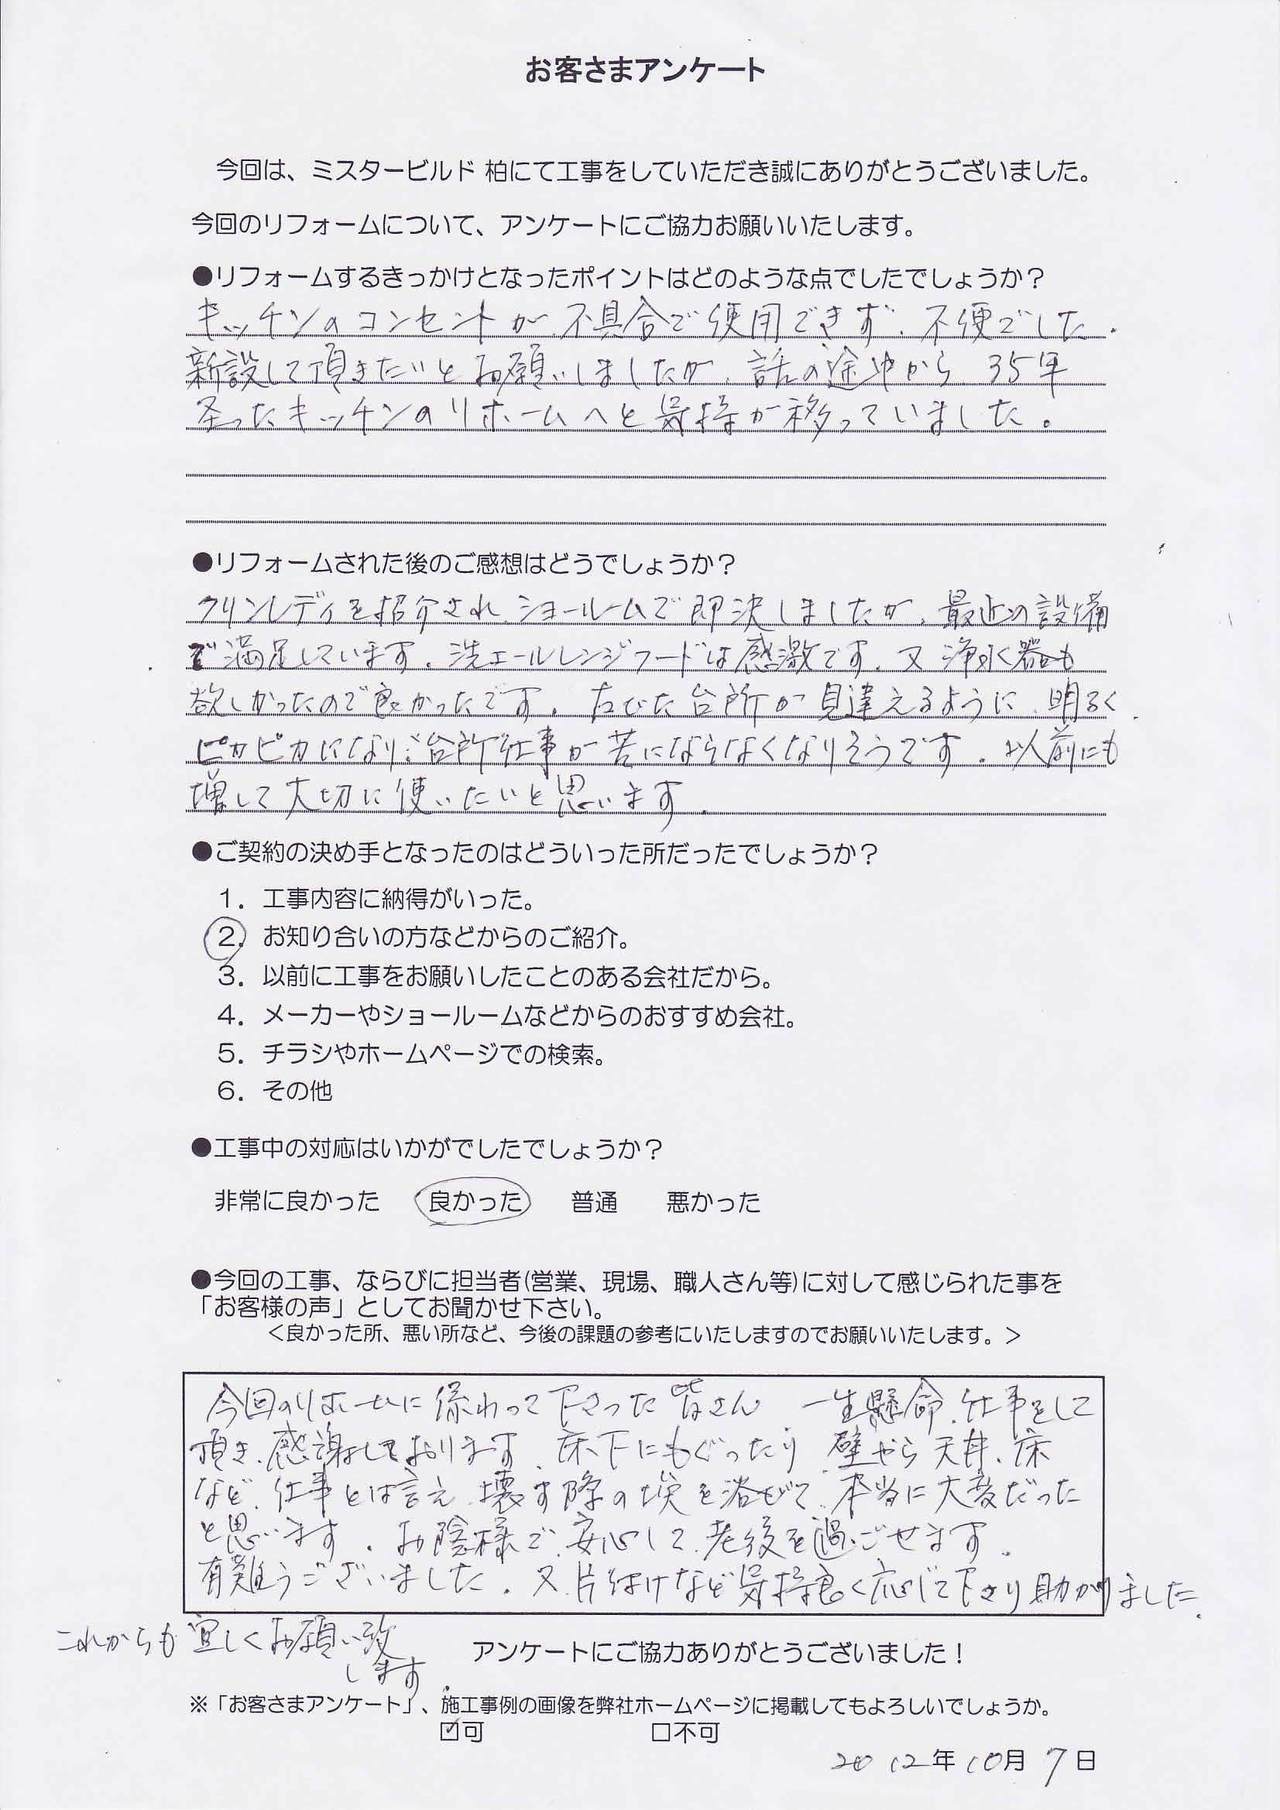 お客さまアンケート
今回は、ミスタービルド 柏にて工事をしていただき誠にありがとうございました。
今回のリフォームについて、アンケートにご協力お願いいたします。
●リフォームするきっかけとなったポイントはどのような点でしたでしょうか？
キッチンのコンセントが、不具合で使用できず、不便でした。
新設して頂きたいとお願いしましたが、話の途中から、35年
経ったキッチンのリホームへと気持が移っていました。
●リフォームされた後のご感想はどうでしょうか？
クリンレディを紹介され、ショールームで即決しましたが、最近の設備
で満足しています。洗エールレンジフードは感激です。又、浄水器も
欲しかったので良かったです。古びた台所が見違えるように、明るく、
ピカピカになり、台所仕事が苦にならなくなりそうです。以前にも
増して大切に使いたいと思います。
●ご契約の決め手となったのはどういった所だったでしょうか？
1．工事内容に納得がいった。
2．お知り合いの方などからのご紹介。
3．以前に工事をお願いしたことのある会社だから。
4．メーカーやショールームなどからのおすすめ会社。
5．チラシやホームページでの検索。
6．その他
●工事中の対応はいかがでしたでしょうか？
非常に良かった 良かった 普通 悪かった
●今回の工事、ならびに担当者(営業、現場、職人さん等)に対して感じられた事を
「お客様の声」としてお聞かせ下さい。
＜良かった所、悪い所など、今後の課題の参考にいたしますのでお願いいたします。＞
今回のリホームに係わって下さった皆さん、一生懸命、仕事をして
頂き、感謝しております。床下にもぐったり、壁やら天井、床
など、仕事とは言え、壊す際の埃を浴びて、本当に大変だった
と思います。お陰様で、安心して、老後を過ごせます。
有難うございました。又、片付けなど気持良く応じて下さり助かりました。
これからも宜しくお願い致
します。
アンケートにご協力ありがとうございました！
※「お客さまアンケート」、施工事例の画像を弊社ホームページに掲載してもよろしいでしょうか。
☑可 □不可
2012年10月7日